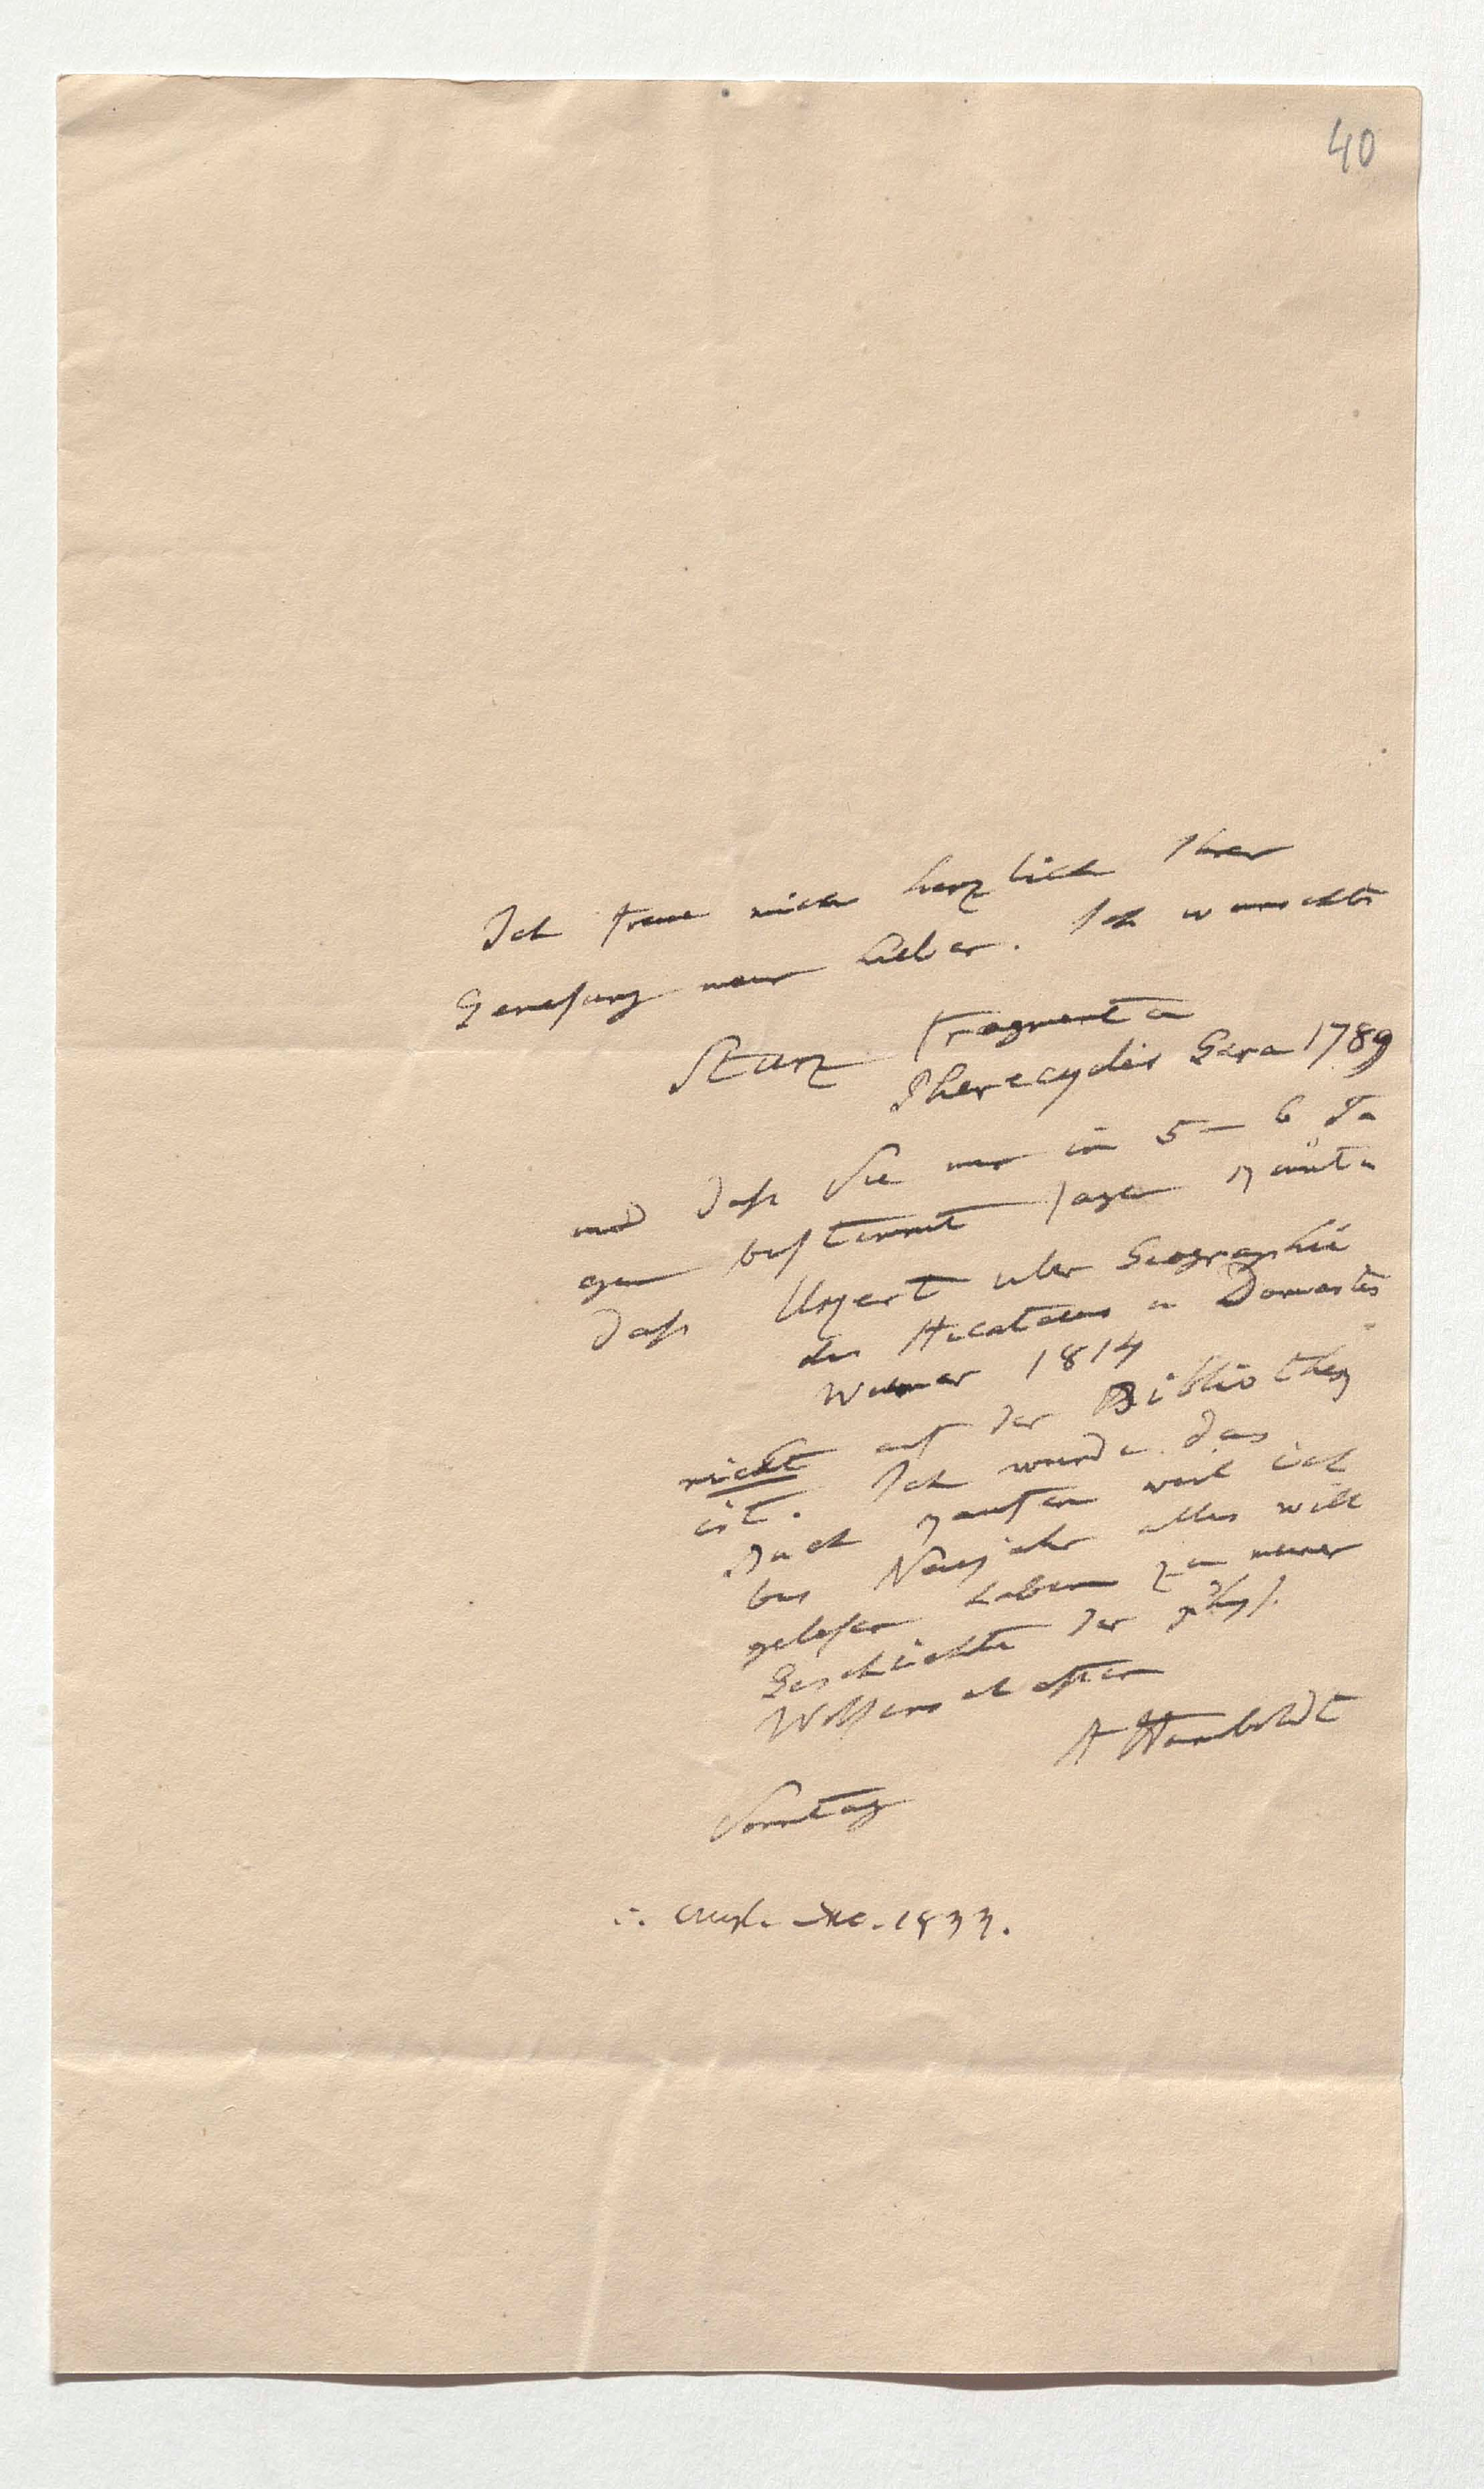 40
Ich freue mich herzlich Ihrer
Genesung mein Lieber. Ich wünschte
Sturz Fragmenta
Pherecydis Gera 1789
und daß Sie mir in 5–6 Ta
gen bestimmt sagen könnten
daß Ukert über Geographie
des Hecataeus u Damastes
Weimar 1814
nicht auf der Bibliothek
ist. Ich würde das
Buch kaufen weil ich
bis Neujahr alles will
gelesen haben zu meiner
Geschichte der phys.
Wissenschaften
A Humboldt
Sonntag
Dec. 1833.